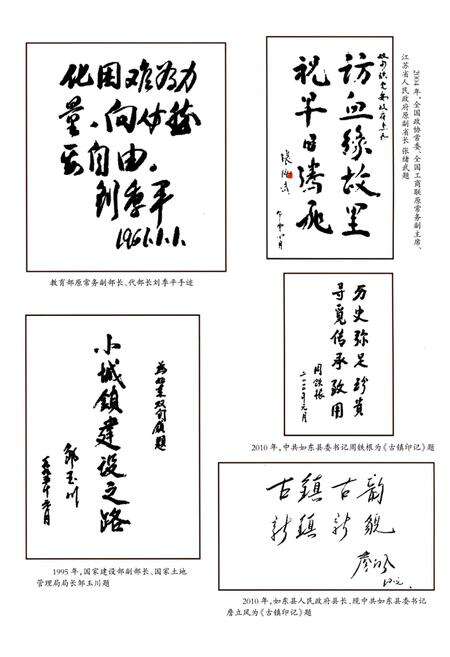 化困难为动
量。向必然
要自由。
刘季平
1961.1.1.
教育部原常务副部长、代部长刘季平手迹
访血缘故里
祝早日腾飞
2004年,全国政协常委、全国工商联原常务副主席、
江苏省人民政府原副省长 张绪武题
历史弥足珍贵
寻觅传承致用
周铁根
二〇一〇年元月
2010年,中共如东县委书记周铁根为《古镇印记》题
小城镇建设之路
邹玉川
1995年,国家建设部副部长、国家土地
管理局局长邹玉川题
古镇古韵
新镇新貌
2010年,如东县人民政府县长、现中共如东县委书记
詹立风为《古镇印记》题